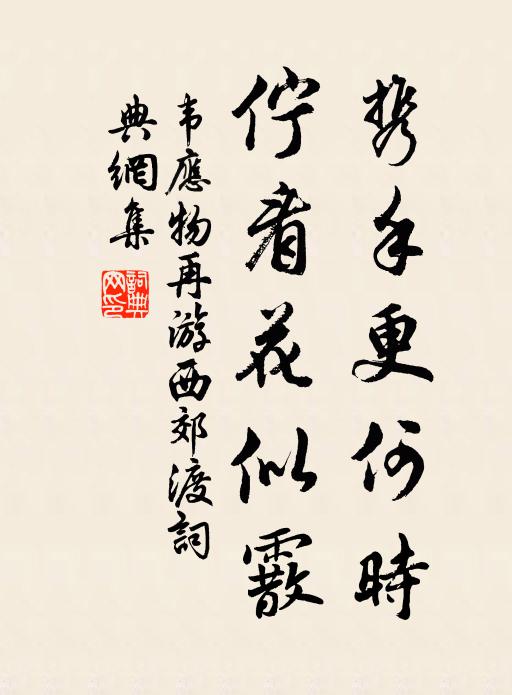 携手更何时
佇看花似霰
韦應物再游西郊渡詞
典網集
詞典
网印